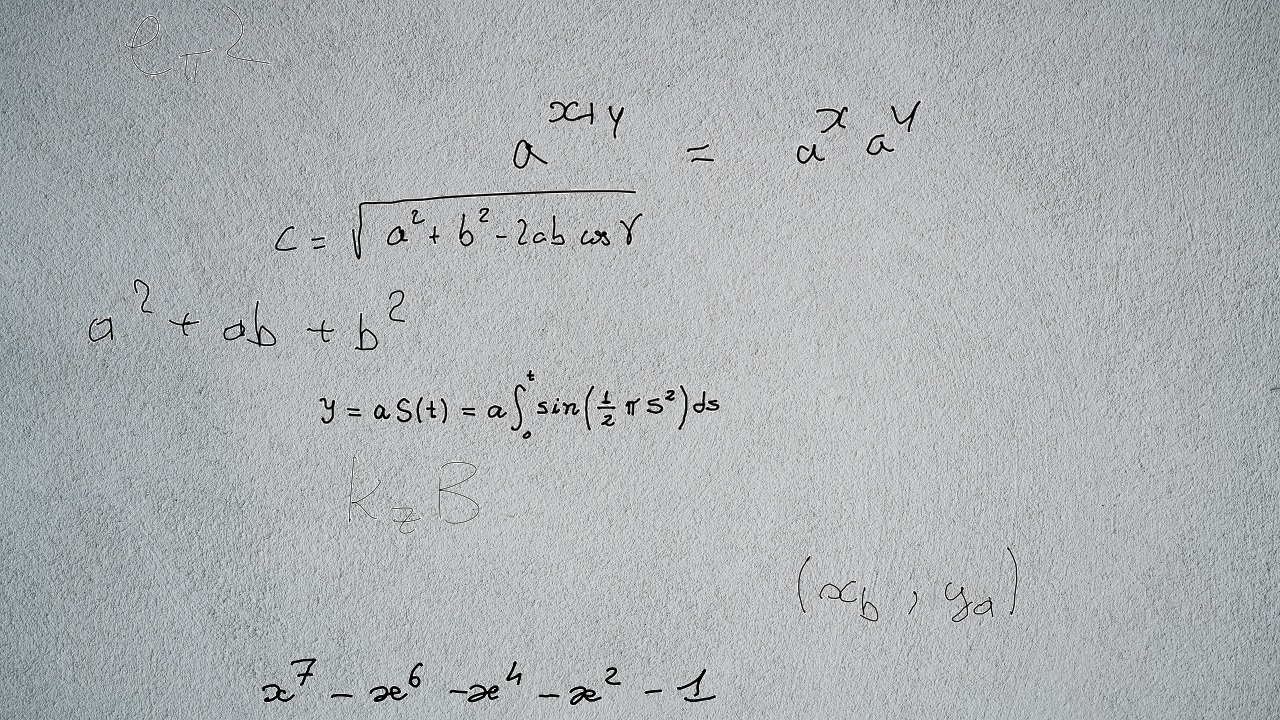 e_π 2
a^{x+y} = a^x a^y
c = √(a² + b² - 2ab cos γ)
a² + ab + b²
y = a S(t) = a ∫₀ᵗ sin(½ π s²) ds
k_z B
(x_b , y_a)
x⁷ - x⁶ - x⁴ - x² - 1